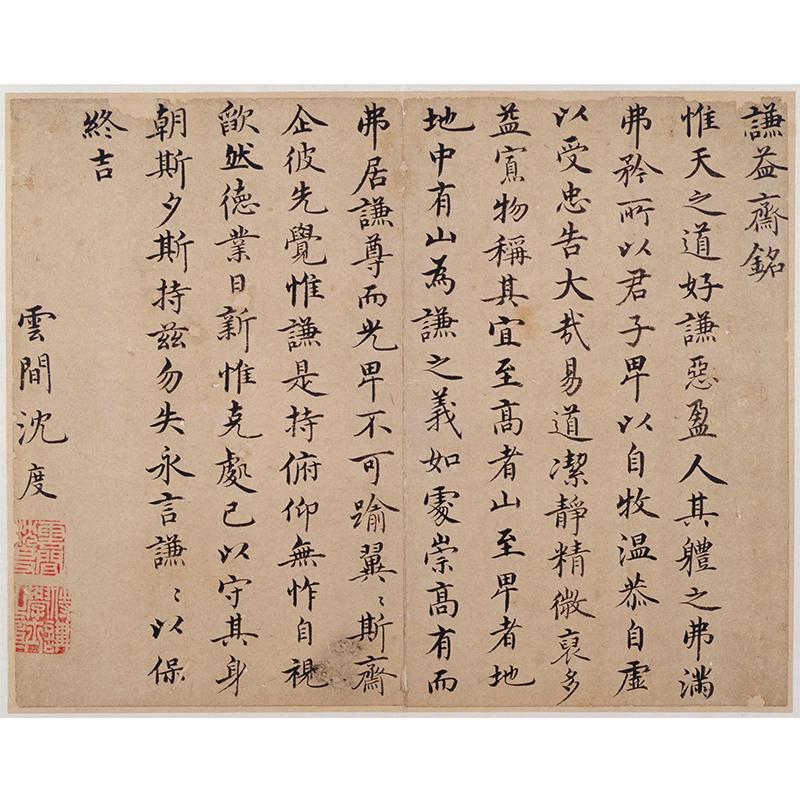 謙益齋銘
惟天之道好謙惡盈人其軆之弗滿
弗矜所以君子卑以自牧温恭自虛
以受忠告大哉易道潔静精微裒多
益寡物稱其宜至髙者山至卑者地
地中有山為謙之義如處崇髙有而
弗居謙尊而光卑不可踰翼〻斯齋
企彼先覺惟謙是持俯仰無怍自視
歉然德業日新惟克處己以守其身
朝斯夕斯持兹勿失永言謙〻以保
終吉
雲間沈度